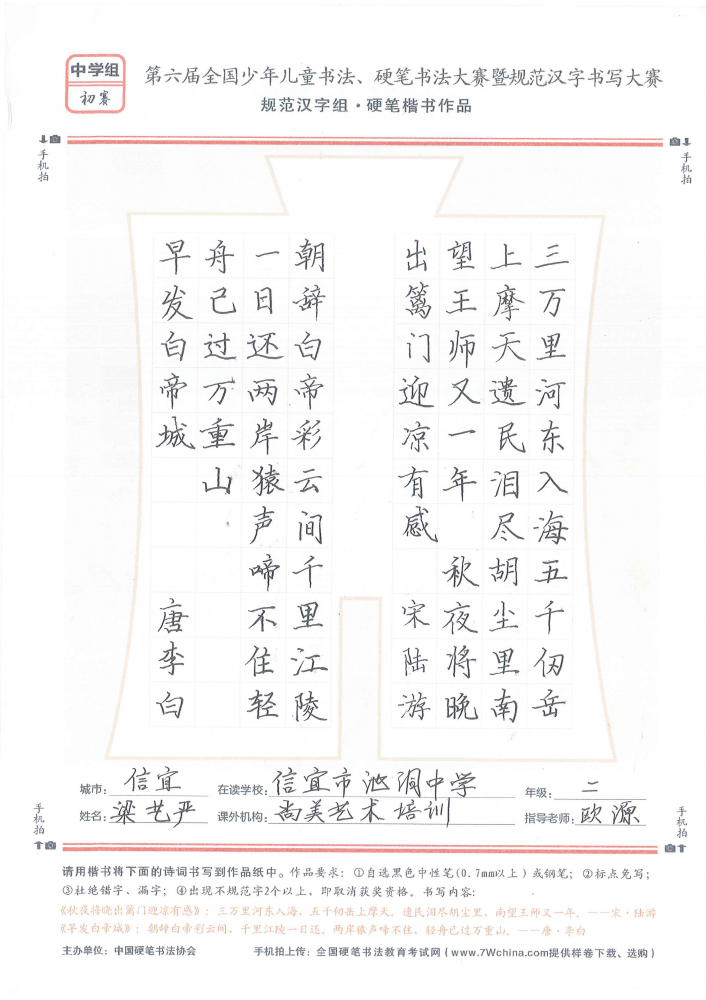 中学组
初赛
第六届全国少年儿童书法、硬笔书法大赛暨规范汉字书写大赛
规范汉字组·硬笔楷书作品
手机拍
手机拍
三万里河东入海五千仞岳
上摩天遗民泪尽胡尘里南
望王师又一年 秋夜将晚
出篱门迎凉有感 宋陆游
朝辞白帝彩云间千里江陵
一日还两岸猿声啼不住轻
舟己过万重山
早发白帝城 唐李白
城市：信宜 在读学校：信宜市池洞中学 年级：二
姓名：梁艺严 课外机构：尚美艺术培训 指导老师：欧源
手机拍
手机拍
请用楷书将下面的诗词书写到作品纸中。作品要求：①自选黑色中性笔(0.7mm以上）或钢笔；②标点免写；
③杜绝错字、漏字；④出现不规范字2个以上，即取消获奖资格。书写内容：
《秋夜将晓出篱门迎凉有感》：三万里河东入海，五千仞岳上摩天。遗民泪尽胡尘里，南望王师又一年。——宋·陆游
《早发白帝城》：朝辞白帝彩云间，千里江陵一日还。两岸猿声啼不住，轻舟已过万重山。——唐·李白
主办单位：中国硬笔书法协会 手机拍上传：全国硬笔书法教育考试网（www.7Wchina.com提供样卷下载、选购）